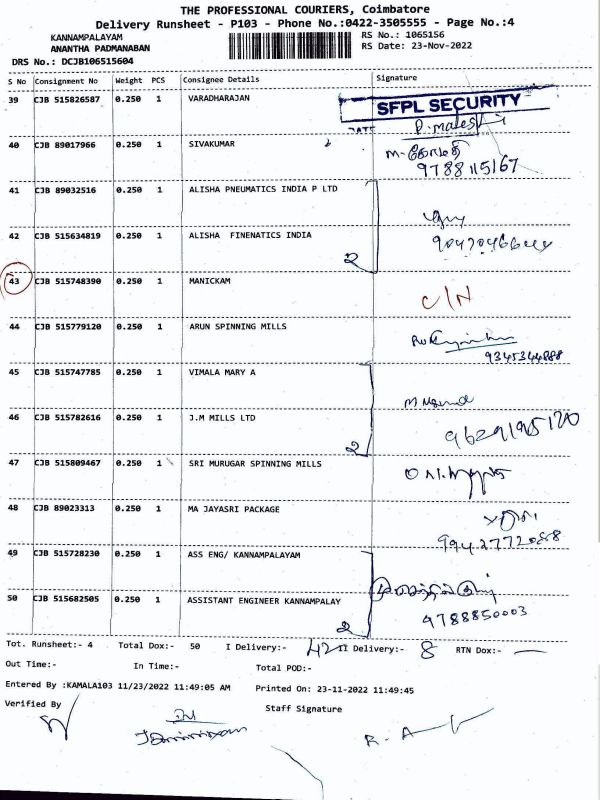 THE PROFESSIONAL COURIERS, Coimbatore
Delivery Runsheet - P103 - Phone No.:0422-3505555 - Page No.:4
KANNAMPALAYAM
RS No.: 1065156
ANANTHA PADMANABAN
RS Date: 23-Nov-2022
DRS No.: DCJB106515604
S No Consignment No Weight PCS Consignee Details Signature
39 CJB 515826587 0.250 1 VARADHARAJAN
SFPL SECURITY
DATE
40 CJB 89017966 0.250 1 SIVAKUMAR
9788115167
41 CJB 89032516 0.250 1 ALISHA PNEUMATICS INDIA P LTD
42 CJB 515634819 0.250 1 ALISHA FINENATICS INDIA
2
43 CJB 515748390 0.250 1 MANICKAM
C/N
44 CJB 515779120 0.250 1 ARUN SPINNING MILLS
9345344888
45 CJB 515747785 0.250 1 VIMALA MARY A
46 CJB 515782616 0.250 1 J.M MILLS LTD
2
47 CJB 515809467 0.250 1 SRI MURUGAR SPINNING MILLS
48 CJB 89023313 0.250 1 MA JAYASRI PACKAGE
9942772088
49 CJB 515728230 0.250 1 ASS ENG/ KANNAMPALAYAM
50 CJB 515682505 0.250 1 ASSISTANT ENGINEER KANNAMPALAY
9788850003
2
Tot. Runsheet:- 4 Total Dox:- 50 I Delivery:- 42 II Delivery:- 8 RTN Dox:- —
Out Time:- In Time:- Total POD:-
Entered By :KAMALA103 11/23/2022 11:49:05 AM Printed On: 23-11-2022 11:49:45
Verified By Staff Signature